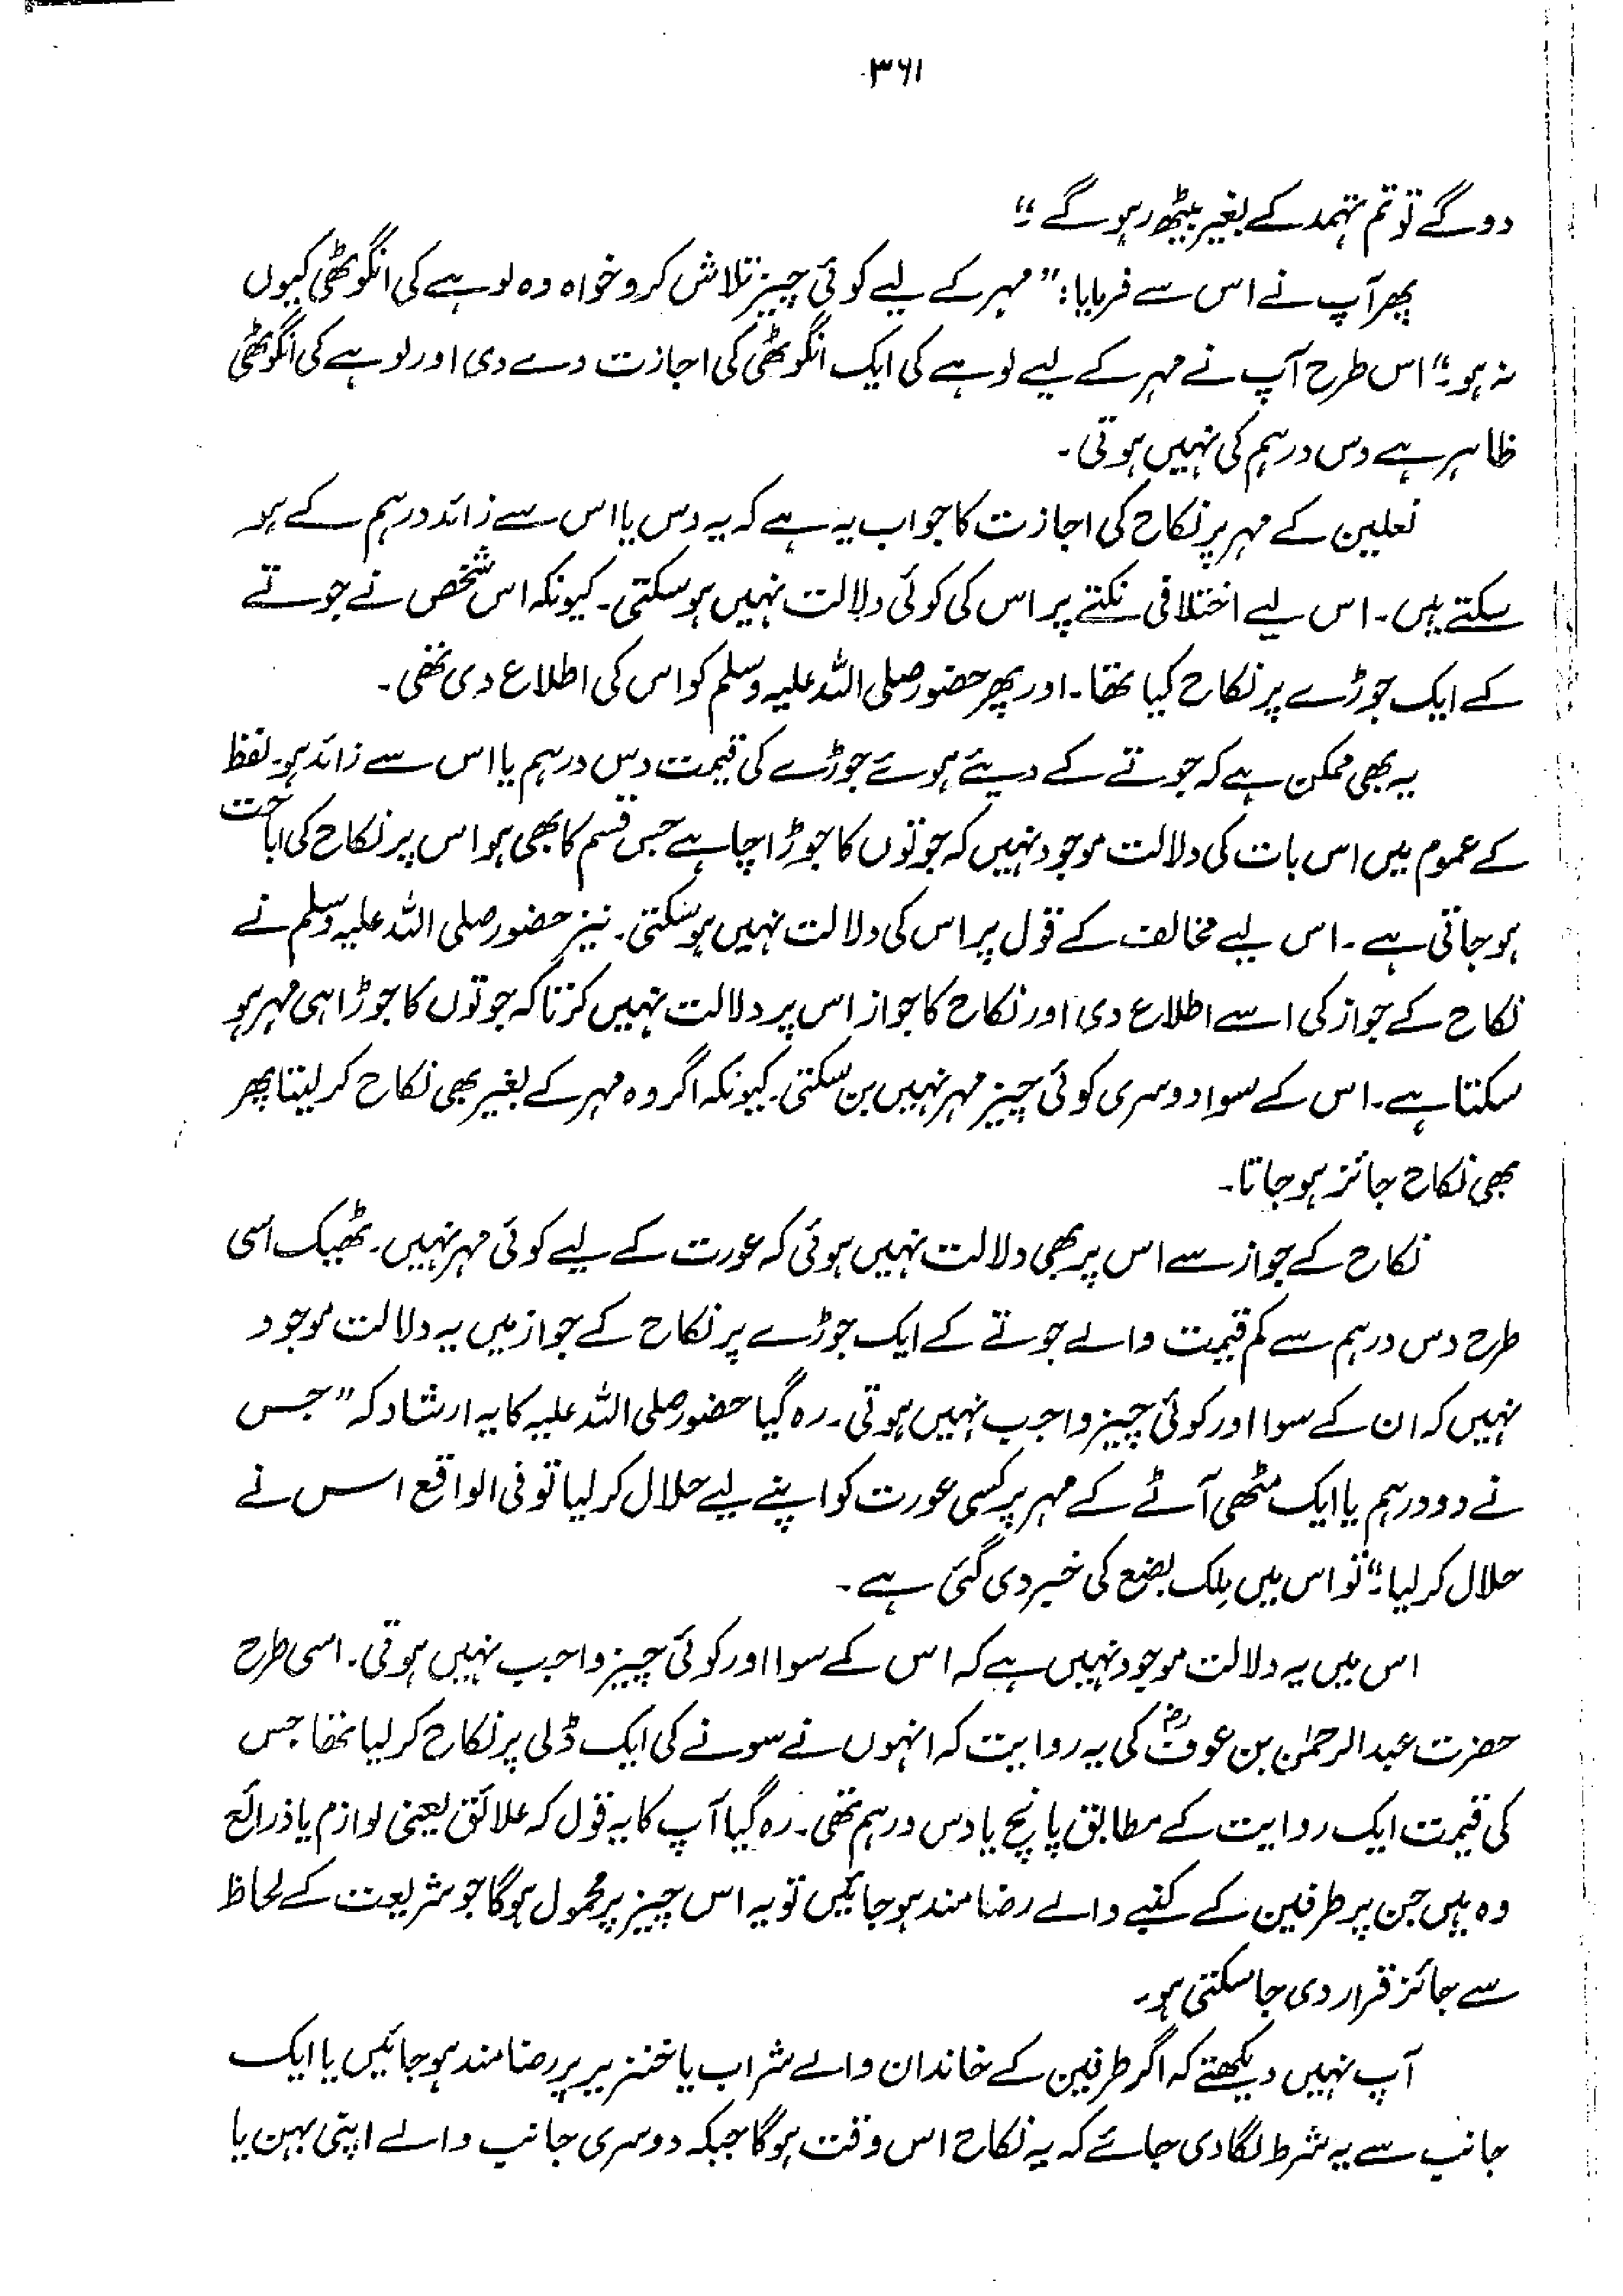 ۳۶۱
دو گے تو تم تہمد کے بغیر بیٹھ رہو گے ۔“
پھر آپ نے اس سے فرمایا: ”مہر کے لیے کوئی چیز تلاش کرو خواہ وہ لوہے کی انگوٹھی کیوں
نہ ہو۔“ اس طرح آپ نے مہر کے لیے لوہے کی ایک انگوٹھی کی اجازت دے دی اور لوہے کی انگوٹھی
ظاہر ہے دس درہم کی نہیں ہوتی۔
نعلین کے مہر پر نکاح کی اجازت کا جواب یہ ہے کہ یہ دس یا اس سے زائد درہم کے ہو
سکتے ہیں۔ اس لیے اختلافی نکتے پر اس کی کوئی دلالت نہیں ہو سکتی۔ کیونکہ اس شخص نے جوتے
کے ایک جوڑے پر نکاح کیا تھا۔ اور پھر حضور صلی اللہ علیہ وسلم کو اس کی اطلاع دی تھی۔
یہ بھی ممکن ہے کہ جوتے کے دیئے ہوئے جوڑے کی قیمت دس درہم یا اس سے زائد ہو۔ لفظ
کے عموم میں اس بات کی دلالت موجود نہیں کہ جوتوں کا جوڑا چاہے جس قسم کا بھی ہو اس پر نکاح کی اباحت
ہو جاتی ہے۔ اس لیے مخالف کے قول پر اس کی دلالت نہیں ہو سکتی۔ نیز حضور صلی اللہ علیہ وسلم نے
نکاح کے جواز کی اسے اطلاع دی اور نکاح کا جواز اس پر دلالت نہیں کرتا کہ جوتوں کا جوڑا ہی مہر ہو
سکتا ہے۔ اس کے سوا دوسری کوئی چیز مہر نہیں بن سکتی۔ کیونکہ اگر وہ مہر کے بغیر بھی نکاح کر لیتا پھر
بھی نکاح جائز ہو جاتا۔
نکاح کے جواز سے اس پر بھی دلالت نہیں ہوئی کہ عورت کے لیے کوئی مہر نہیں۔ ٹھیک اسی
طرح دس درہم سے کم قیمت والے جوتے کے ایک جوڑے پر نکاح کے جواز میں یہ دلالت موجود
نہیں کہ ان کے سوا اور کوئی چیز واجب نہیں ہوتی۔ رہ گیا حضور صلی اللہ علیہ کا یہ ارشاد کہ ”جس
نے دو درہم یا ایک مٹھی آٹے کے مہر پر کسی عورت کو اپنے لیے حلال کر لیا تو فی الواقع اس نے
حلال کر لیا۔“ تو اس میں مِلک بضع کی خبر دی گئی ہے۔
اس میں یہ دلالت موجود نہیں ہے کہ اس کے سوا اور کوئی چیز واجب نہیں ہوتی۔ اسی طرح
حضرت عبدالرحمٰن بن عوفؓ کی یہ روایت کہ انہوں نے سونے کی ایک ڈلی پر نکاح کر لیا تھا جس
کی قیمت ایک روایت کے مطابق پانچ یا دس درہم تھی۔ رہ گیا آپ کا یہ قول کہ علائق یعنی لوازم یا ذرائع
وہ ہیں جن پر طرفین کے کنبے والے رضامند ہو جائیں تو یہ اس چیز پر محمول ہوگا جو شریعت کے لحاظ
سے جائز قرار دی جا سکتی ہو۔
آپ نہیں دیکھتے کہ اگر طرفین کے خاندان والے شراب یا خنزیر پر رضامند ہو جائیں یا ایک
جانب سے یہ شرط لگا دی جائے کہ یہ نکاح اس وقت ہوگا جبکہ دوسری جانب والے اپنی بہن یا